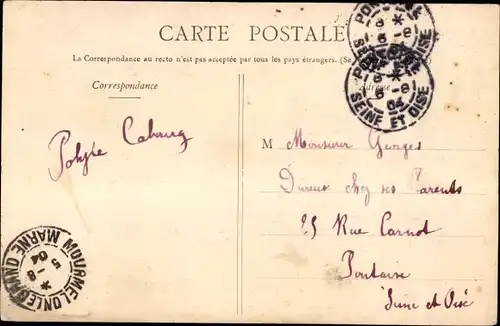 CARTE POSTALE
La Correspondance au recto n'est pas acceptée par tous les pays étrangers. (Se
Correspondance
Adresse
SEINE ET OISE
SEINE ET OISE
04
Cabourg
M Monsieur Georges
Dureux chez ses Parents
25 Rue Carnot
Pontoise
Seine et Oise
MOURMELON LE GRAND MARNE
8
5
04